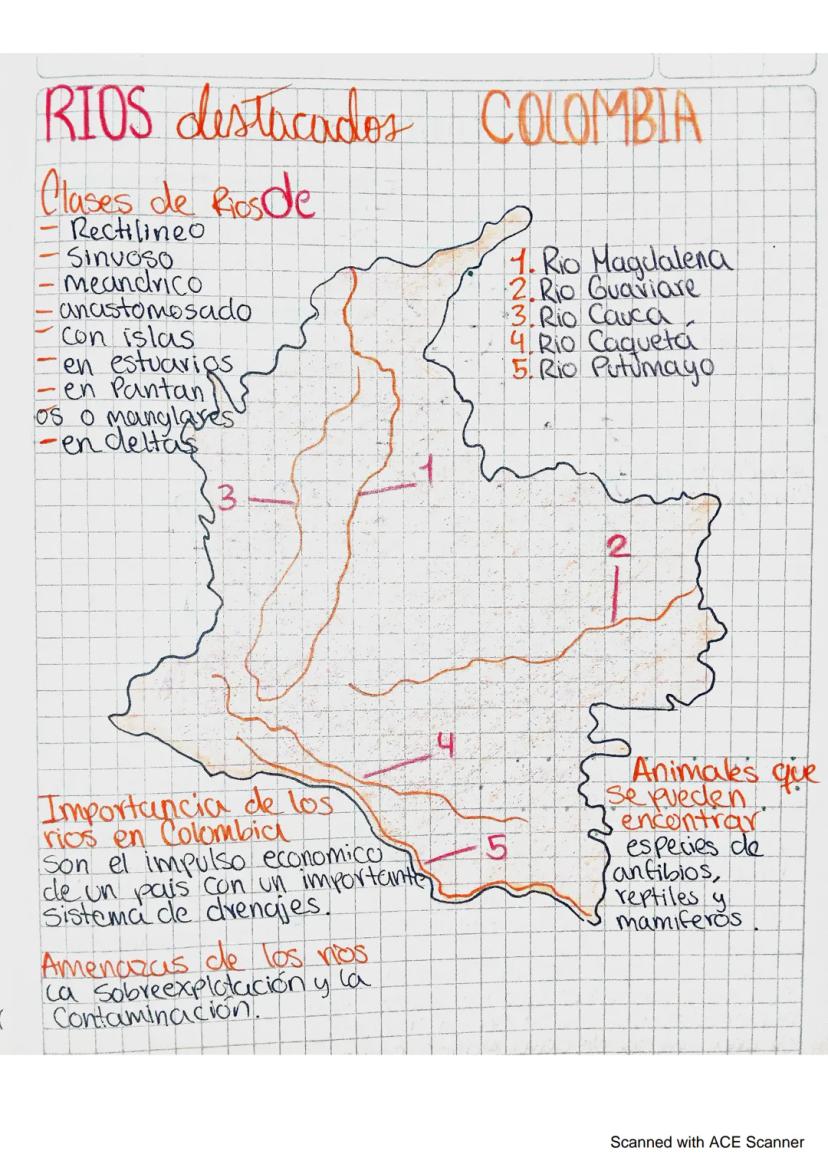 RIOS destacados de COLOMBIA
Clases de Rios
- Rectilineo
- Sinuoso
- meandrico
- anastomosado
- con islas
- en estuarios
- en Pantan
os o manglares
- en deltas
1. Rio Magdalena
2. Rio Guaviare
3. Rio Cauca
4. Rio Caquetá
5. Rio Putumayo
1
3
2
4
5
Importancia de los
rios en Colombia
son el impulso economico
de un pais con un importante
sistema de drenajes.
Amenazas de los rios
La sobreexplotación y la
Contaminación.
Animales que
se pueden
encontrar
especies de
anfibios,
reptiles y
mamiferos.
Scanned with ACE Scanner